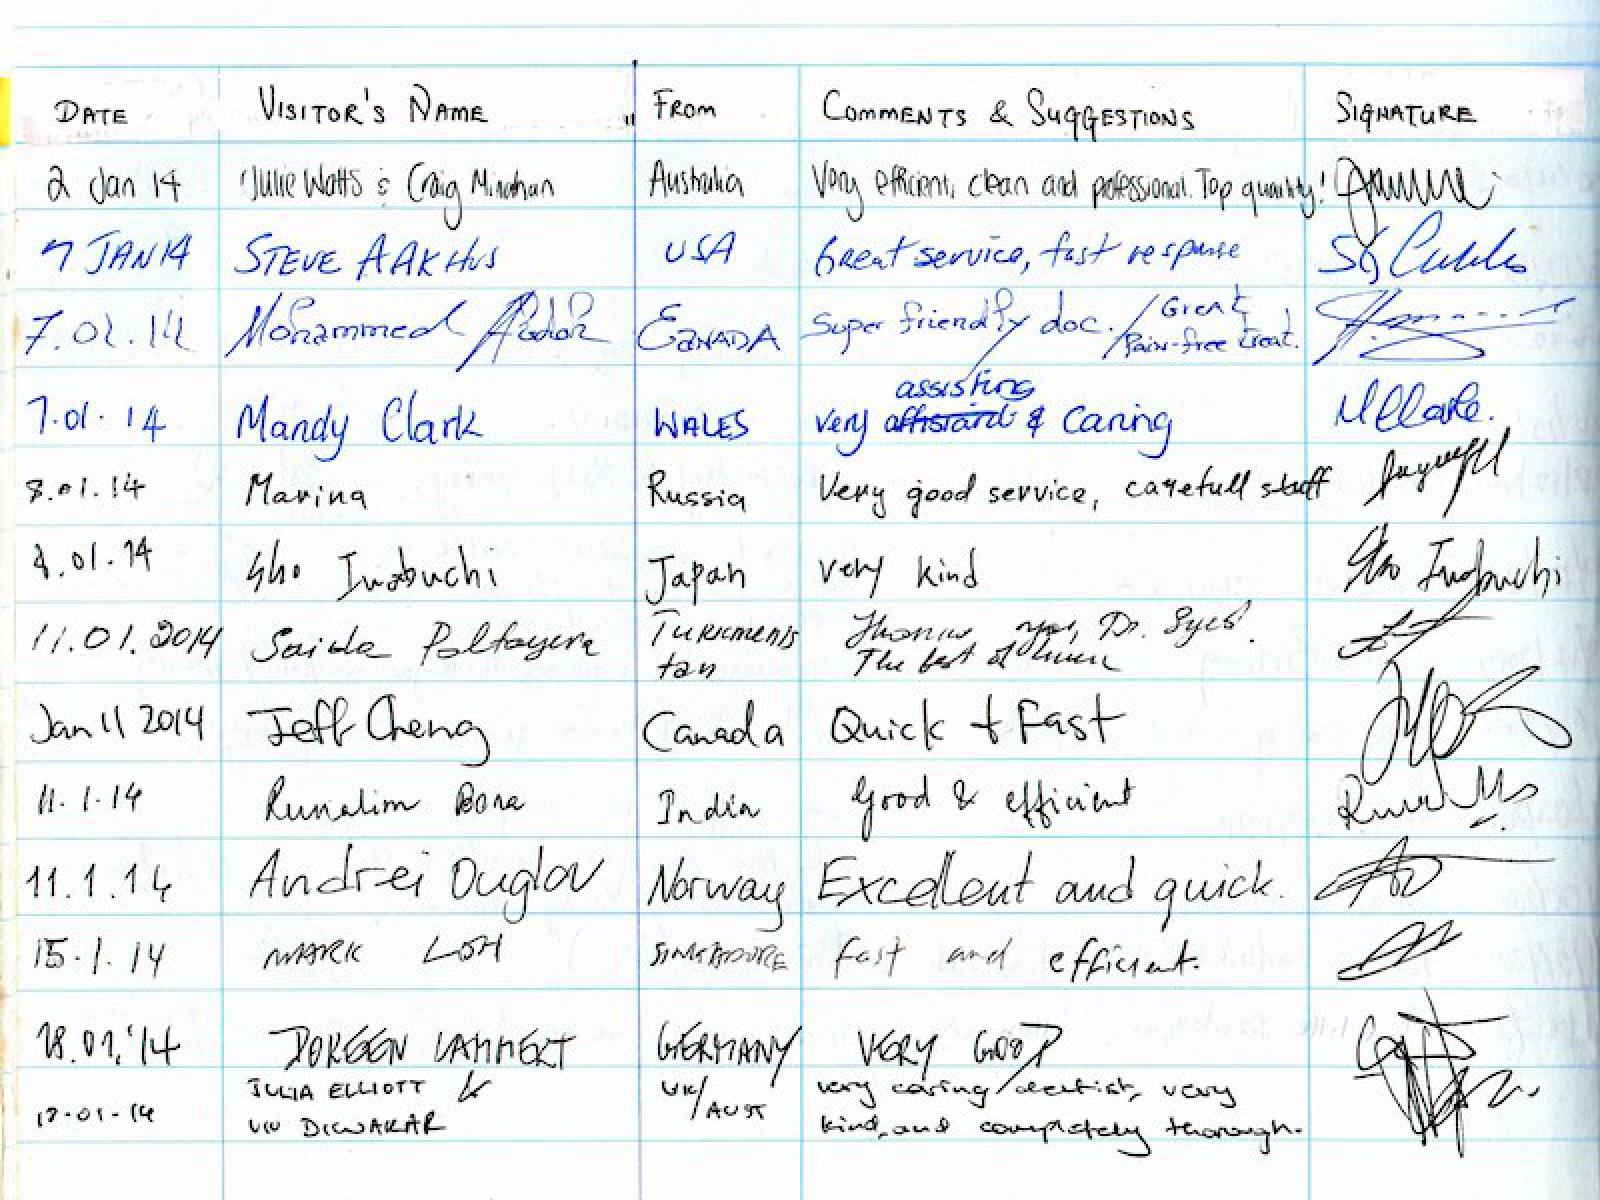 DATE VISITOR'S NAME " FROM COMMENTS & SUGGESTIONS SIGNATURE
2 Jan 14 Julie Watts & Craig Minahan Australia Very efficient, clean and professional. Top quality!
7 JAN 14 STEVE AAKHUS USA Great service, fast response
7.01.14 Mohammed CANADA Super friendly doc. / Great Pain-free treat.
7.01.14 Mandy Clark WALES very assisting & Caring MClark.
8.01.14 Marina Russia Very good service, carefull staff
8.01.14 Sho Inabuchi Japan very kind Sho Inabuchi
11.01.2014 Saida Turkmenis Thank you, Dr. Syed.
tan The best of
Jan 11 2014 Jeff Cheng Canada Quick + Fast
11.1.14 Runalim Bora India Good & efficient
11.1.14 Andrei Ouglov Norway Excellent and quick.
15.1.14 MARK LOH SINGAPORE fast and efficient.
18.01.'14 DOREEN LAMMERT GERMANY VERY GOOD
JULIA ELLIOTT & UK/ very caring dentist, very
17-01-14 VIV DIWAKAR AUST kind, and completely thorough.